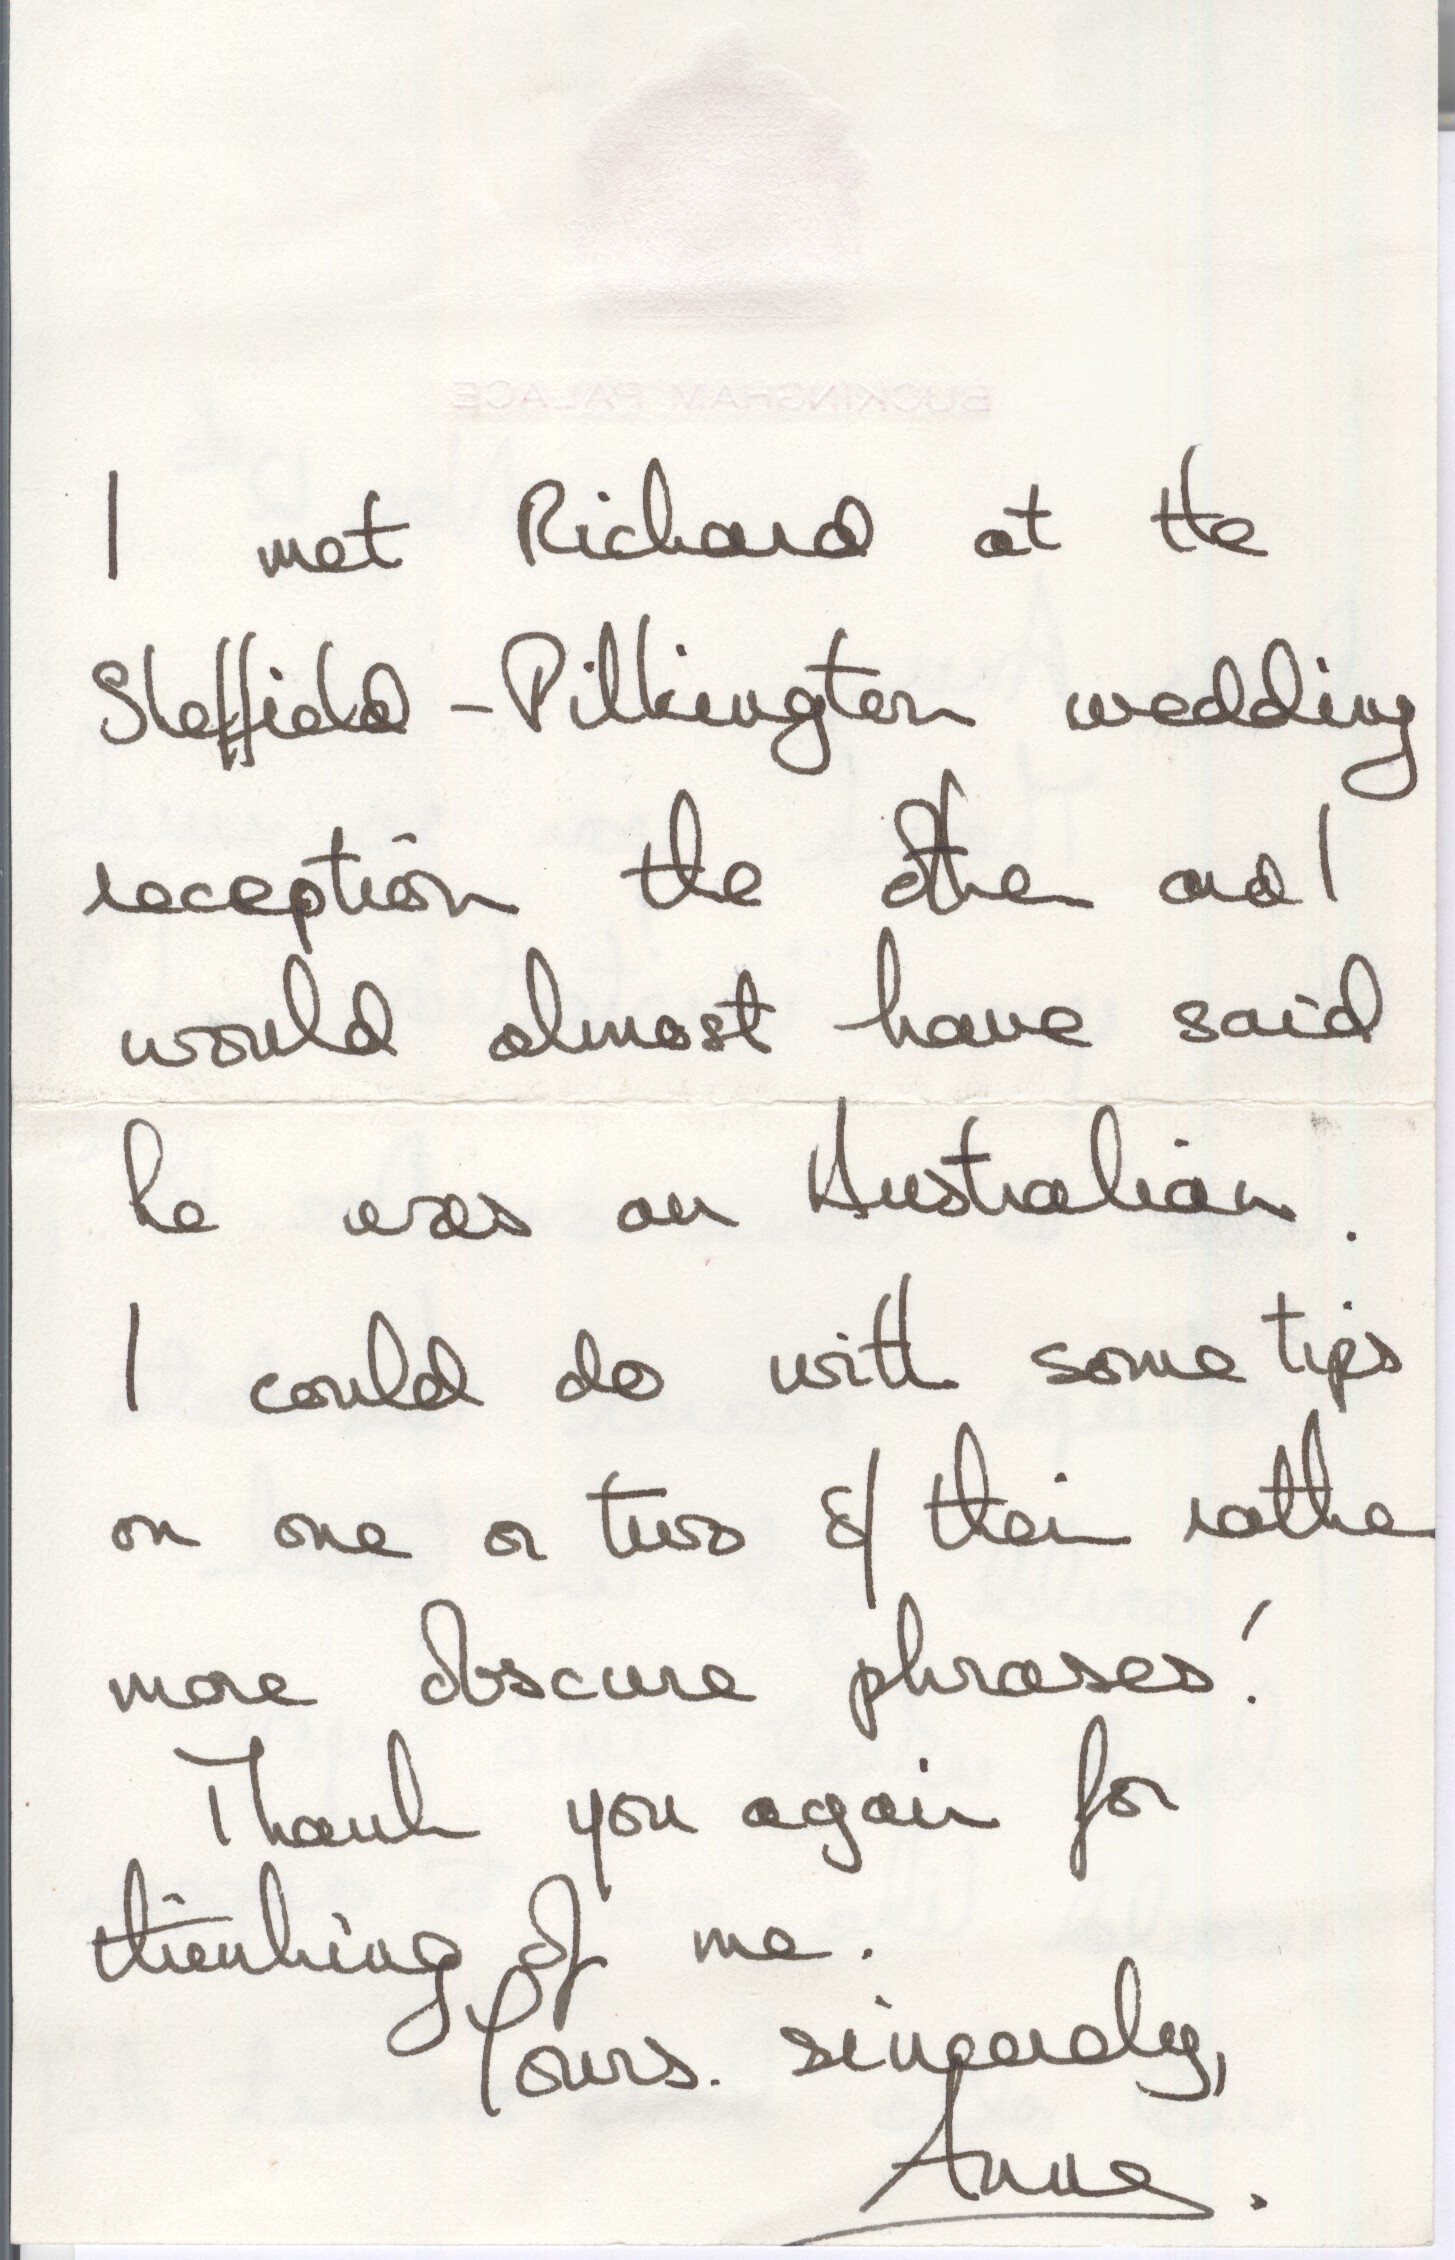 BUCKINGHAM PALACE
I met Richard at the
Sheffield - Pilkington wedding
reception the other and I
would almost have said
he was an Australian.
I could do with some tips
on one or two of their rather
more obscure phrases!
Thank you again for
thinking of me.
Yours. sincerely,
Anne.